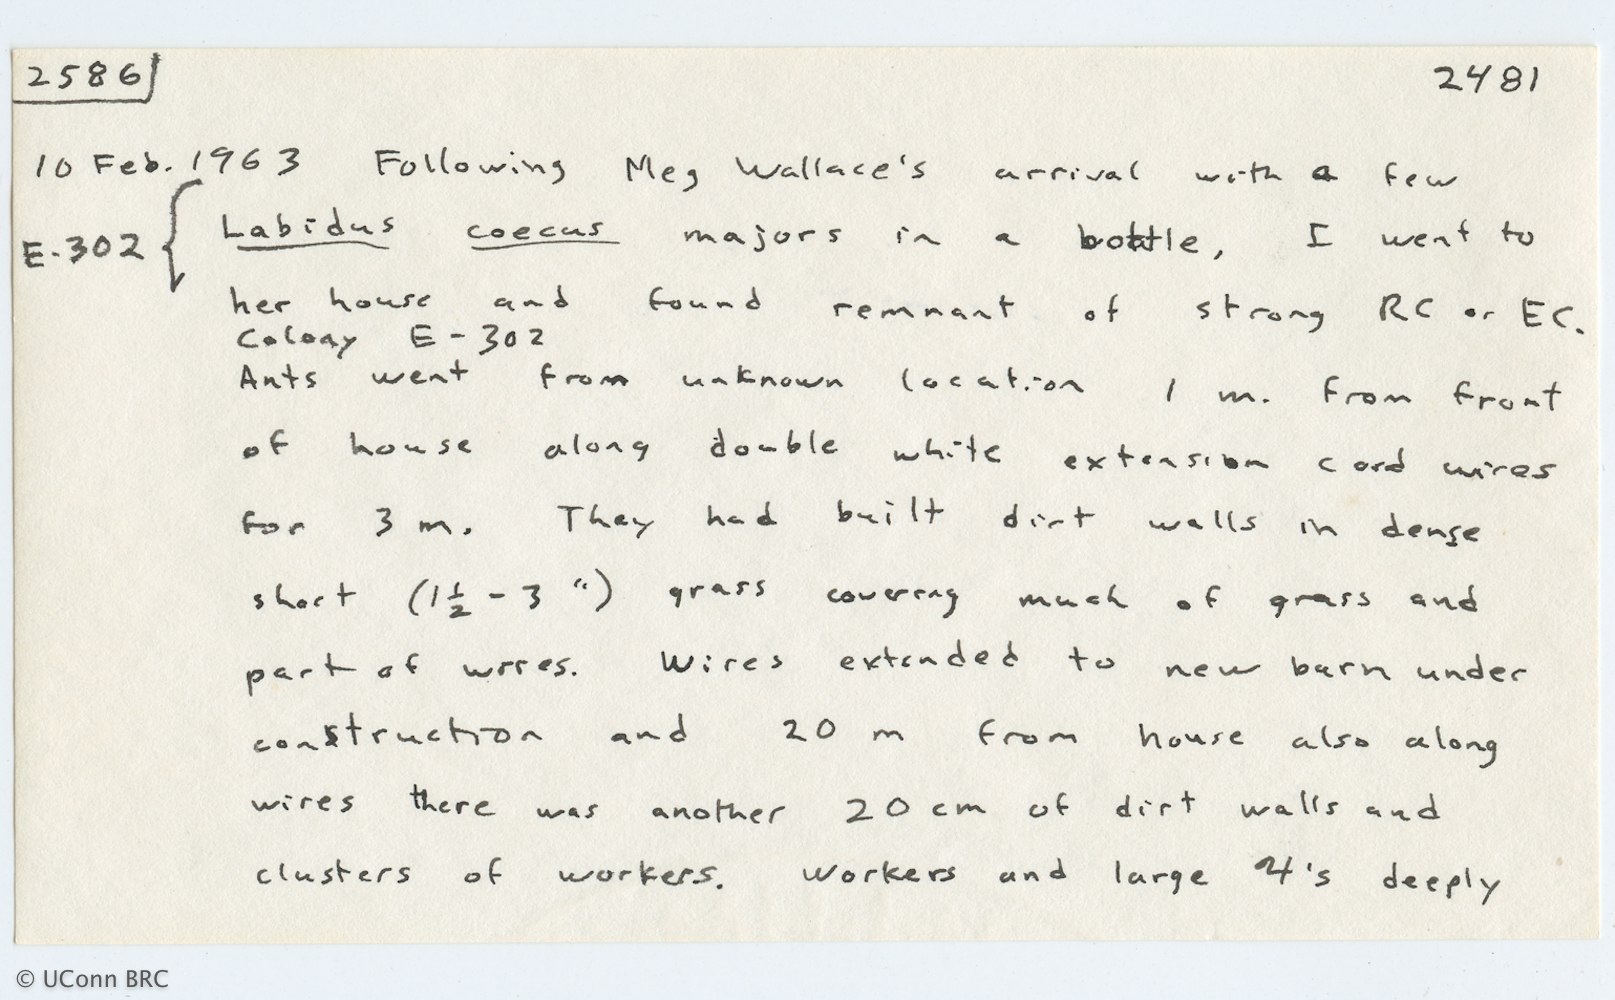 2586 2481
10 Feb. 1963 Following Meg Wallace's arrival with a few
E-302 { Labidus coecus majors in a bottle, I went to
her house and found remnant of strong RC or EC.
Colony E-302
Ants went from unknown location 1 m. from front
of house along double white extension cord wires
for 3 m. They had built dirt walls in dense
short (1½ - 3 ") grass covering much of grass and
part of wires. Wires extended to new barn under
construction and 20 m from house also along
wires there was another 20 cm of dirt walls and
clusters of workers. Workers and large 4's deeply
© UConn BRC